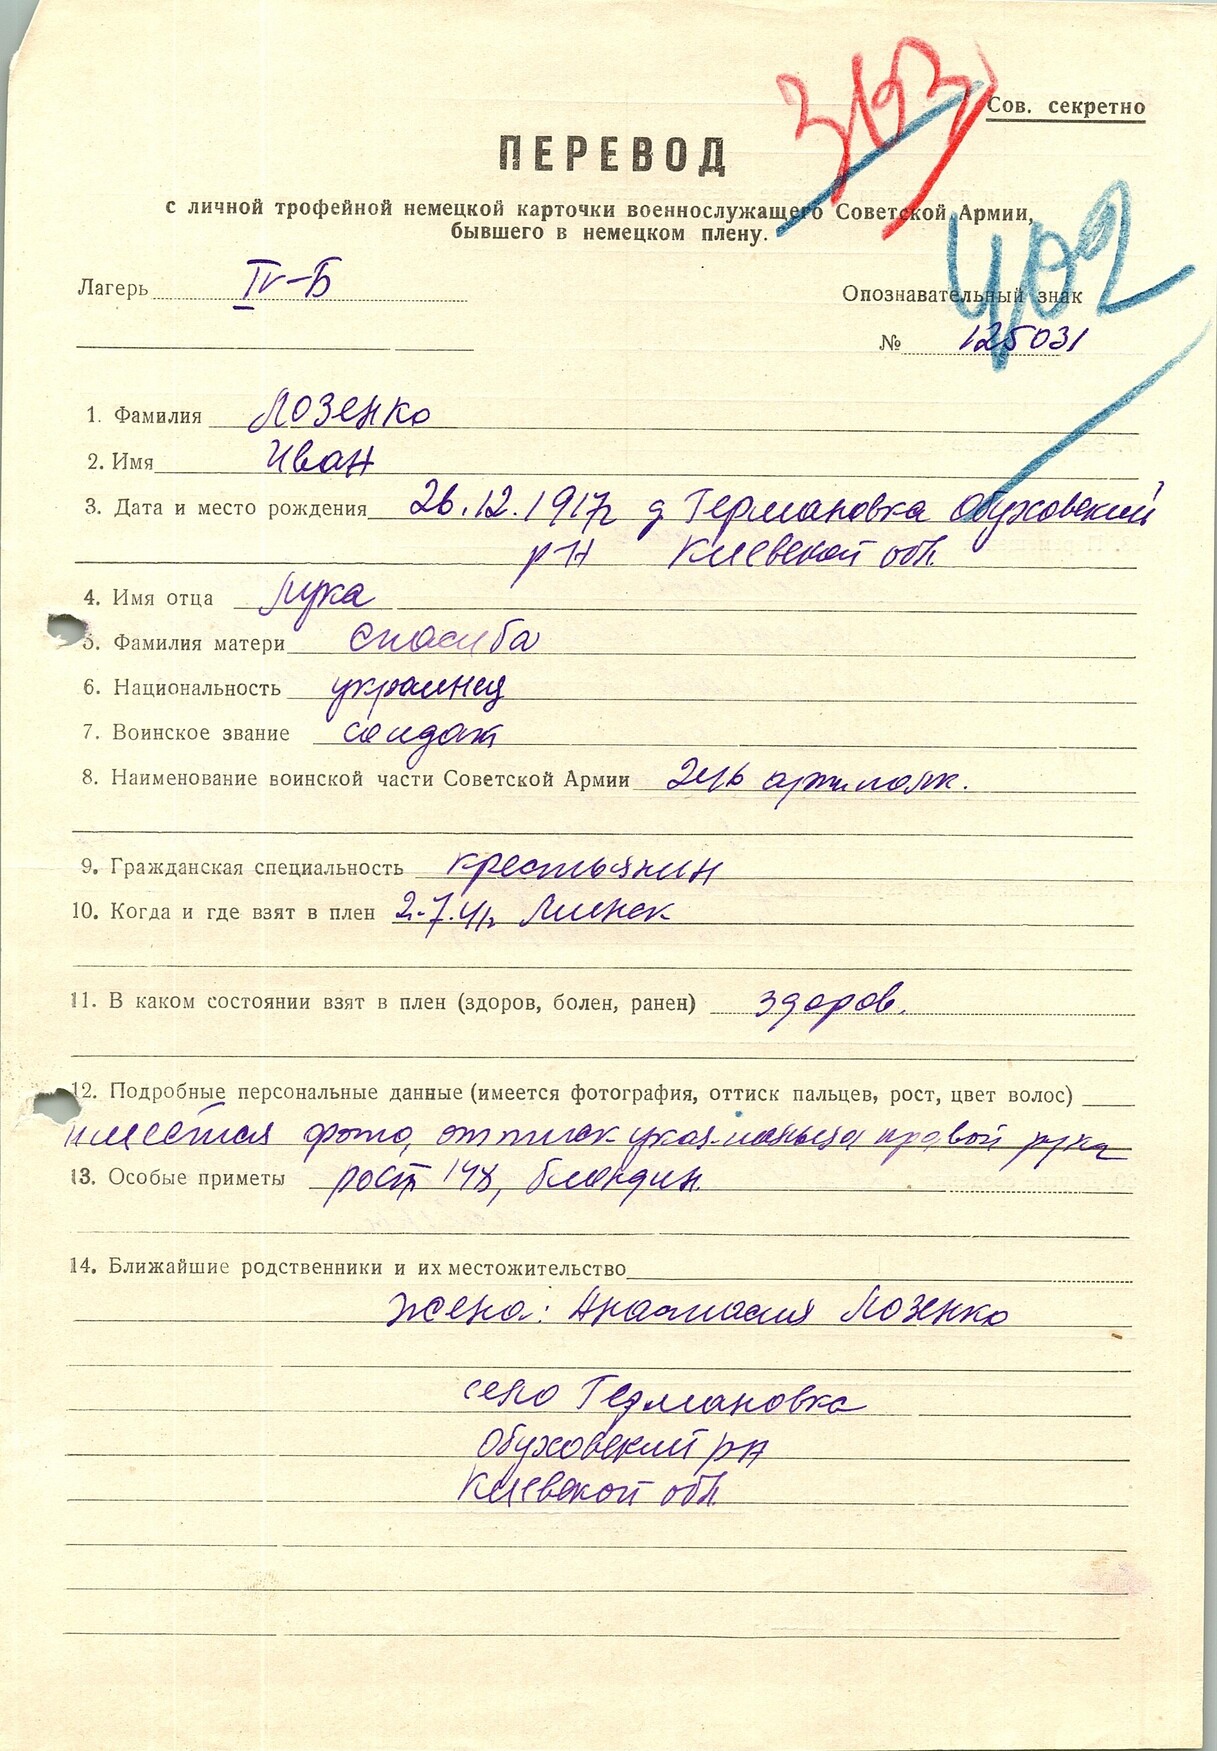 Сов. секретно
ПЕРЕВОД
с личной трофейной немецкой карточки военнослужащего Советской Армии,
бывшего в немецком плену.
402
Лагерь IV-Б
Опознавательный знак
№ 125031
1. Фамилия Лозенко
2. Имя Иван
3. Дата и место рождения 26.12.1917г д Германовка Обуховский
р-н Киевской обл.
4. Имя отца Лука
5. Фамилия матери Спасиба
6. Национальность украинец
7. Воинское звание солдат
8. Наименование воинской части Советской Армии артполк.
9. Гражданская специальность крестьянин
10. Когда и где взят в плен 2.7.41г. Минск
11. В каком состоянии взят в плен (здоров, болен, ранен) здоров.
12. Подробные персональные данные (имеется фотография, оттиск пальцев, рост, цвет волос)
имеется фото, оттиск указ. пальца правой руки
13. Особые приметы рост блондин.
14. Ближайшие родственники и их местожительство
жена: Анастасия Лозенко
село Германовка
Обуховский р-н
Киевской обл.